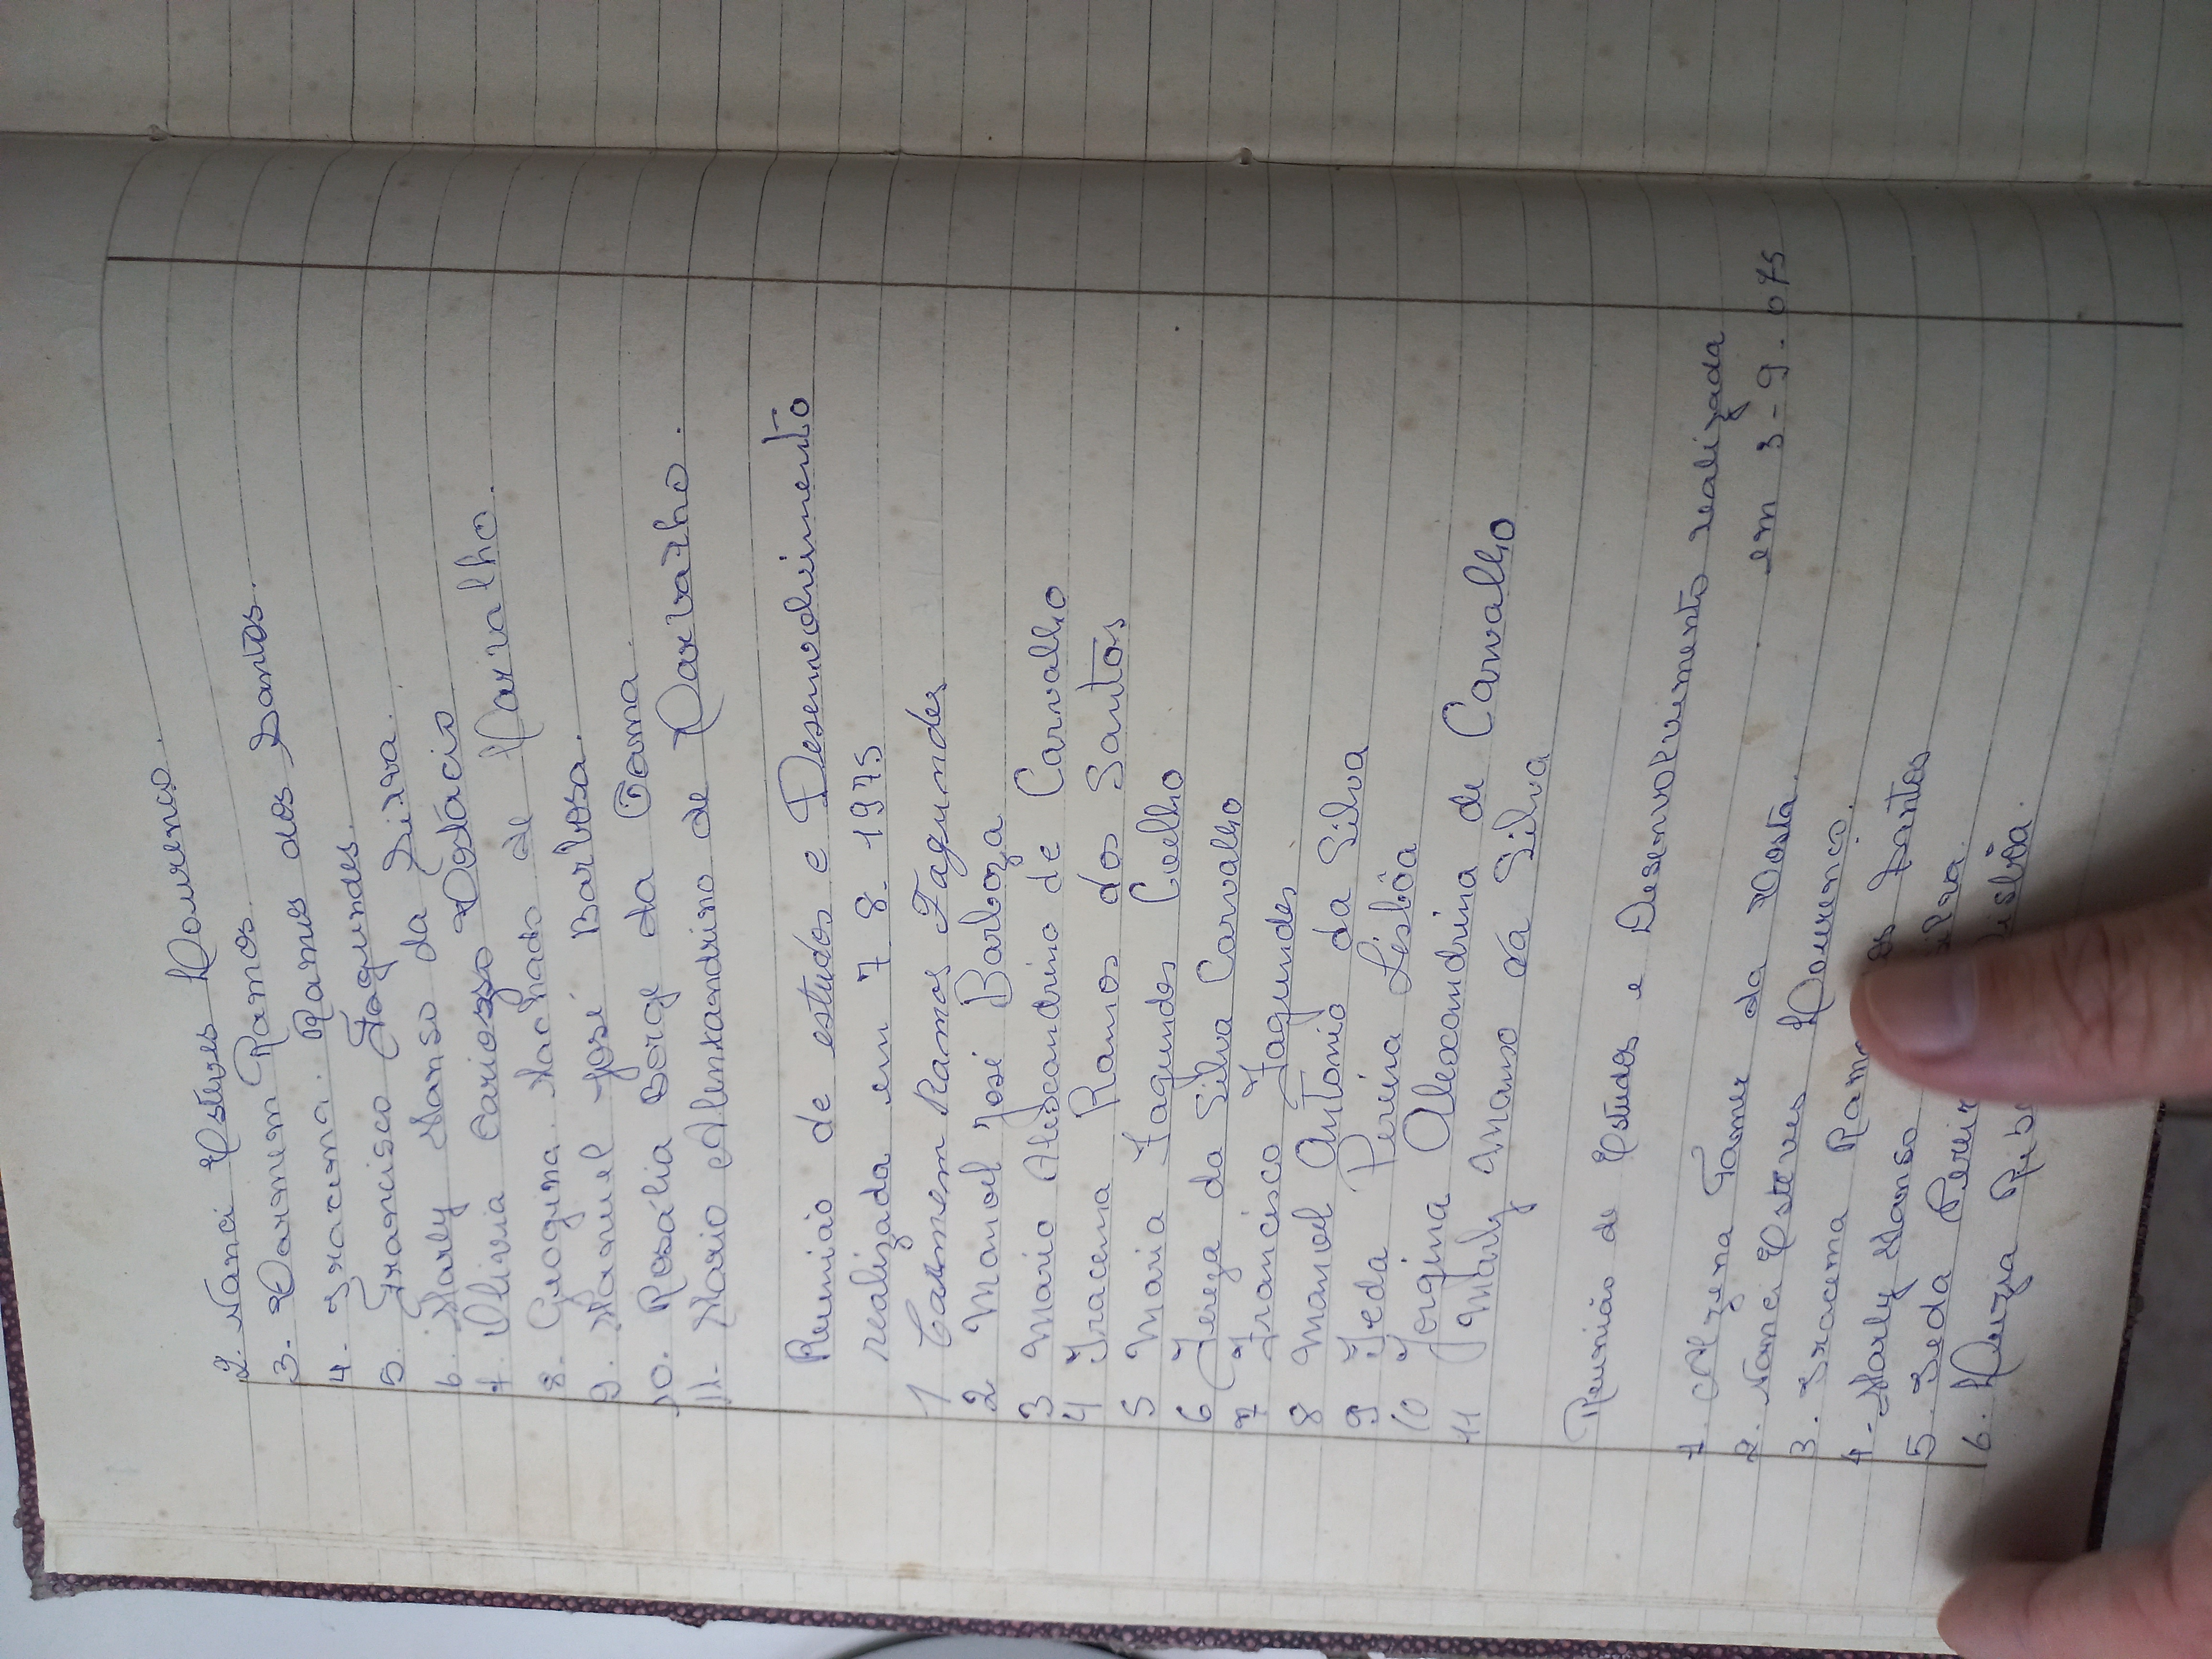 2. Nanci Esteves Lourenço.
3. Carmem Ramos
4. Iracema. Ramos dos Santos.
5. Francisco Fagundes.
6. Marly Manso da Silva.
7. Olivia Cardoso Costácio
8. Geogina. Machado de Carvalho.
9. Manuel José Barbosa.
10. Rosália Borge da Gama.
11. Mario Alexandrino de Carvalho.
Reunião de estudos e Desenvolvimento
realizada em 7 8. 1975
1 Carmem Ramos Fagundes
2 Manoel José Barboza
3 Mario Alexandrino de Carvalho
4 Iracema Ramos dos Santos
5 Maria Fagundes Coelho
6 Tereza da Silva Carvalho
7 Francisco Fagundes
8 Manoel Antonio da Silva
9 Ieda Pereira Lisbôa
10 Jorgina Alexandrina de Carvalho
11 Marly Manso da Silva
Reunião de Estudos e Desenvolvimento realizada
em 3-9. 075
1. Alzena Gomes da Costa.
2. Nanci Esteves Lourenço.
3. Iracema Ramos dos Santos
4- Marly Manso Silva.
5. Ieda Pereir Lisbôa.
6. Luzia Ribe